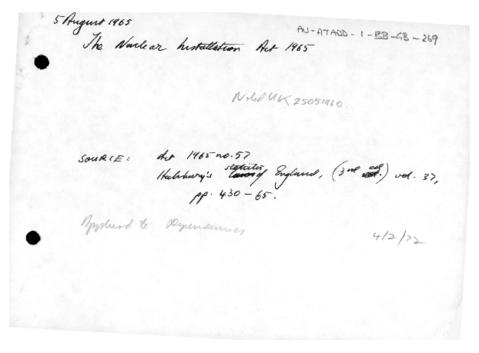 5 August 1965
AU-ATADD-1-BB-GB-269
The Nuclear Installation Act 1965
UK 25051960
SOURCE: Act 1965 no. 57
Halsbury's statutes of England, (3rd ed.) vol. 37,
pp. 430-65.
Applied to Dependencies
4/2/72